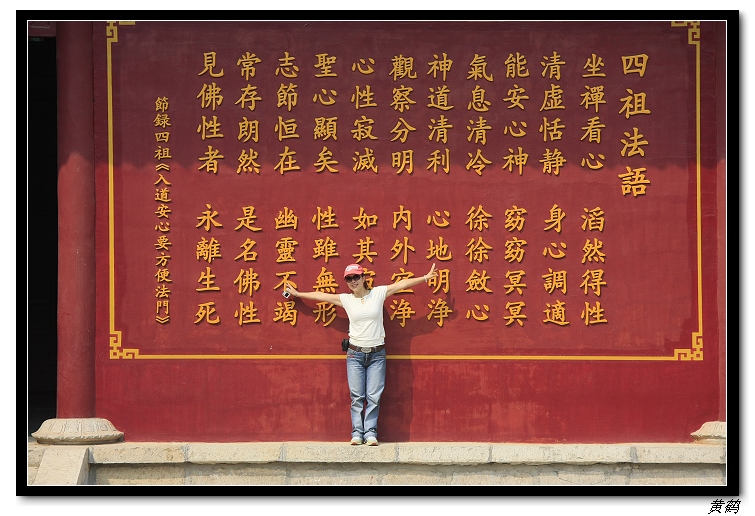 四祖法語
坐禪看心 滔然得性
清虛恬静 身心調適
能安心神 窈窈冥冥
氣息清冷 徐徐斂心
神道清利 心地明净
觀察分明 内外空净
心性寂滅 如其
聖心顯矣 性雖無形
志節恒在 幽靈不竭
常存朗然 是名佛性
見佛性者 永離生死
節錄四祖《入道安心要方便法門》
黄鹤